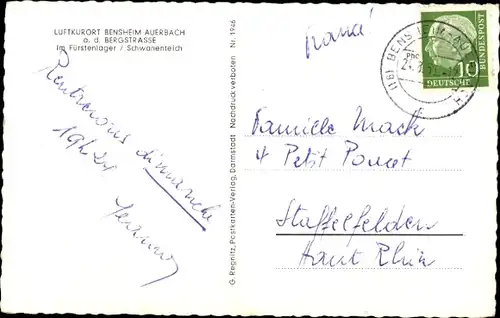 LUFTKURORT BENSHEIM AUERBACH
a. d. BERGSTRASSE
Im Fürstenlager / Schwanenteich
Rentrerons dimanche
19h24
G. Regnitz, Postkarten-Verlag, Darmstadt Nachdruck verboten Nr. 1946
France!
(16) BENSHEIM
10
DEUTSCHE
BUNDESPOST
Famille Mack
4 Petit Poucet
Staffelfelden
Haut Rhin